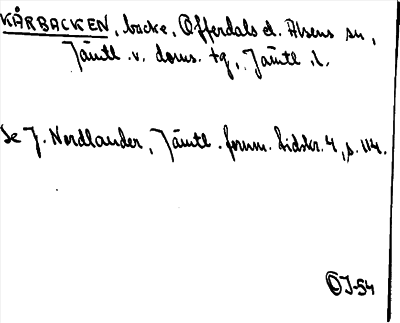 KÅRBACKEN, backe, Offerdals el. Alsens sn,
Jämtl. v. doms. tg, Jämtl. l.
Se J. Nordlander, Jämtl. fornm. tidskr. 4, s. 114.
OJ-54